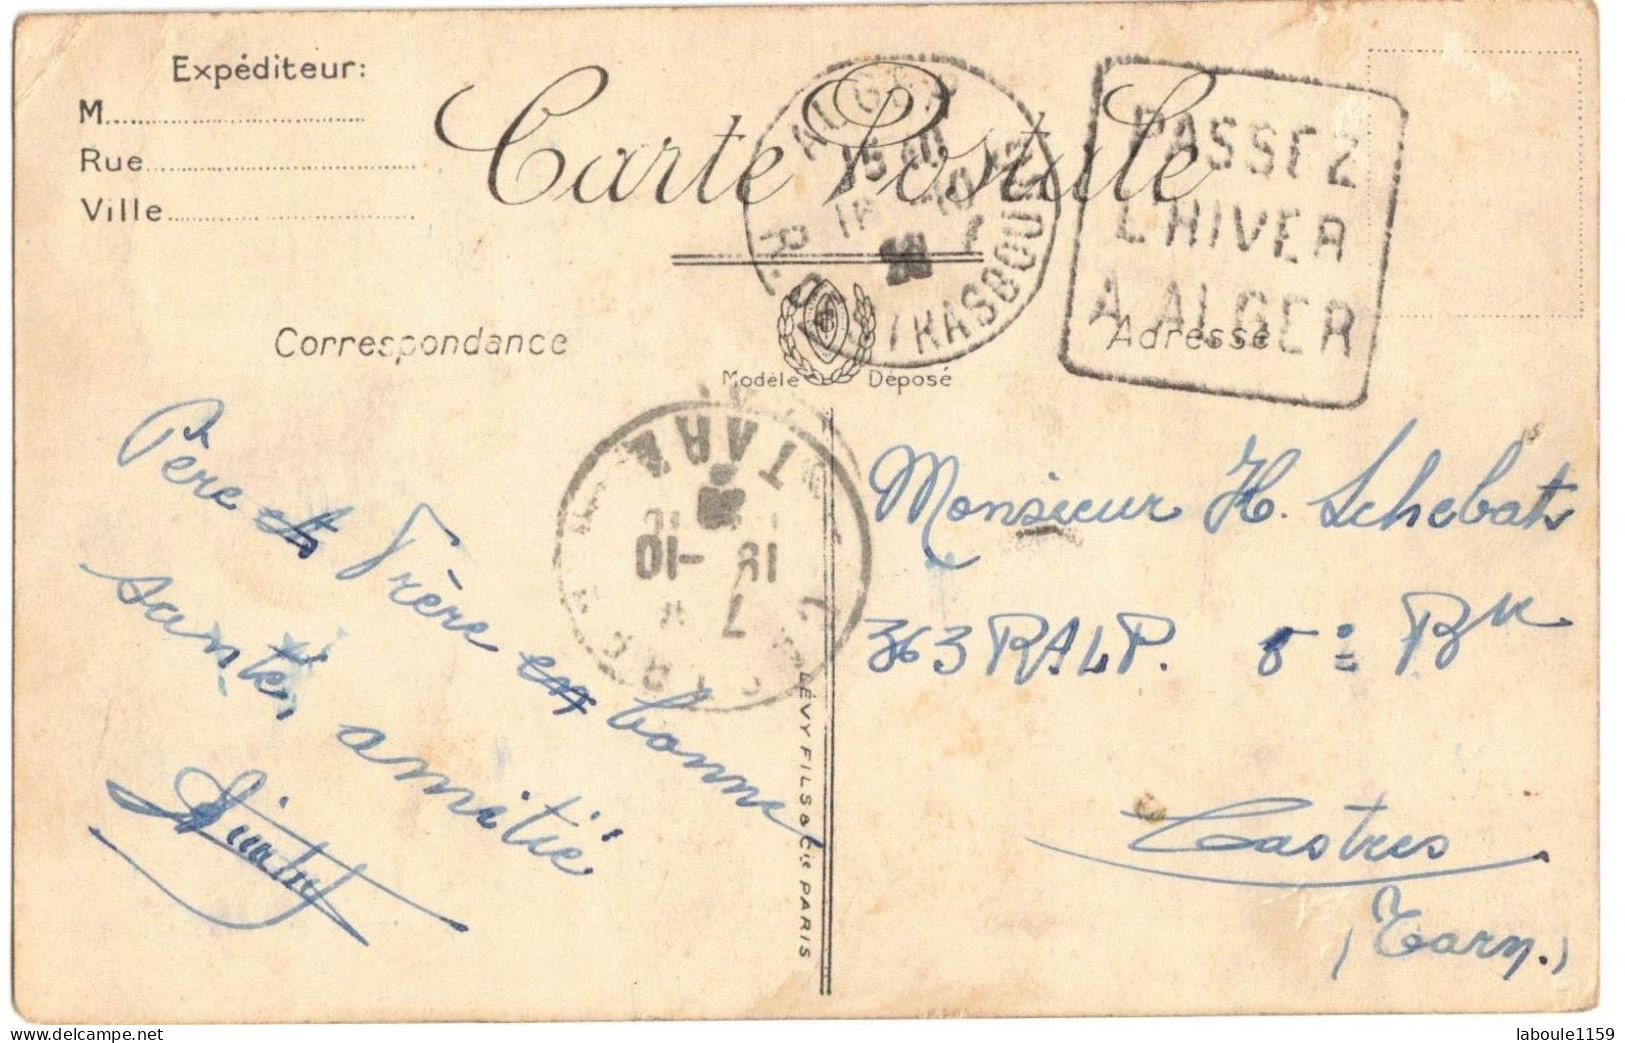 Expéditeur:
M
Rue
Ville
Carte Postale
ALGER
15 40
R. DE STRASBOURG
PASSEZ
L'HIVER
A ALGER
Correspondance
Adresse
Modèle Déposé
Père et Frère en bonne
santé, amitié
TARN
18 -10
LÉVY FILS & Cie PARIS
Monsieur H. Schebat
363 RALP. 5e Bie
Castres
(Tarn.)
laboule1159